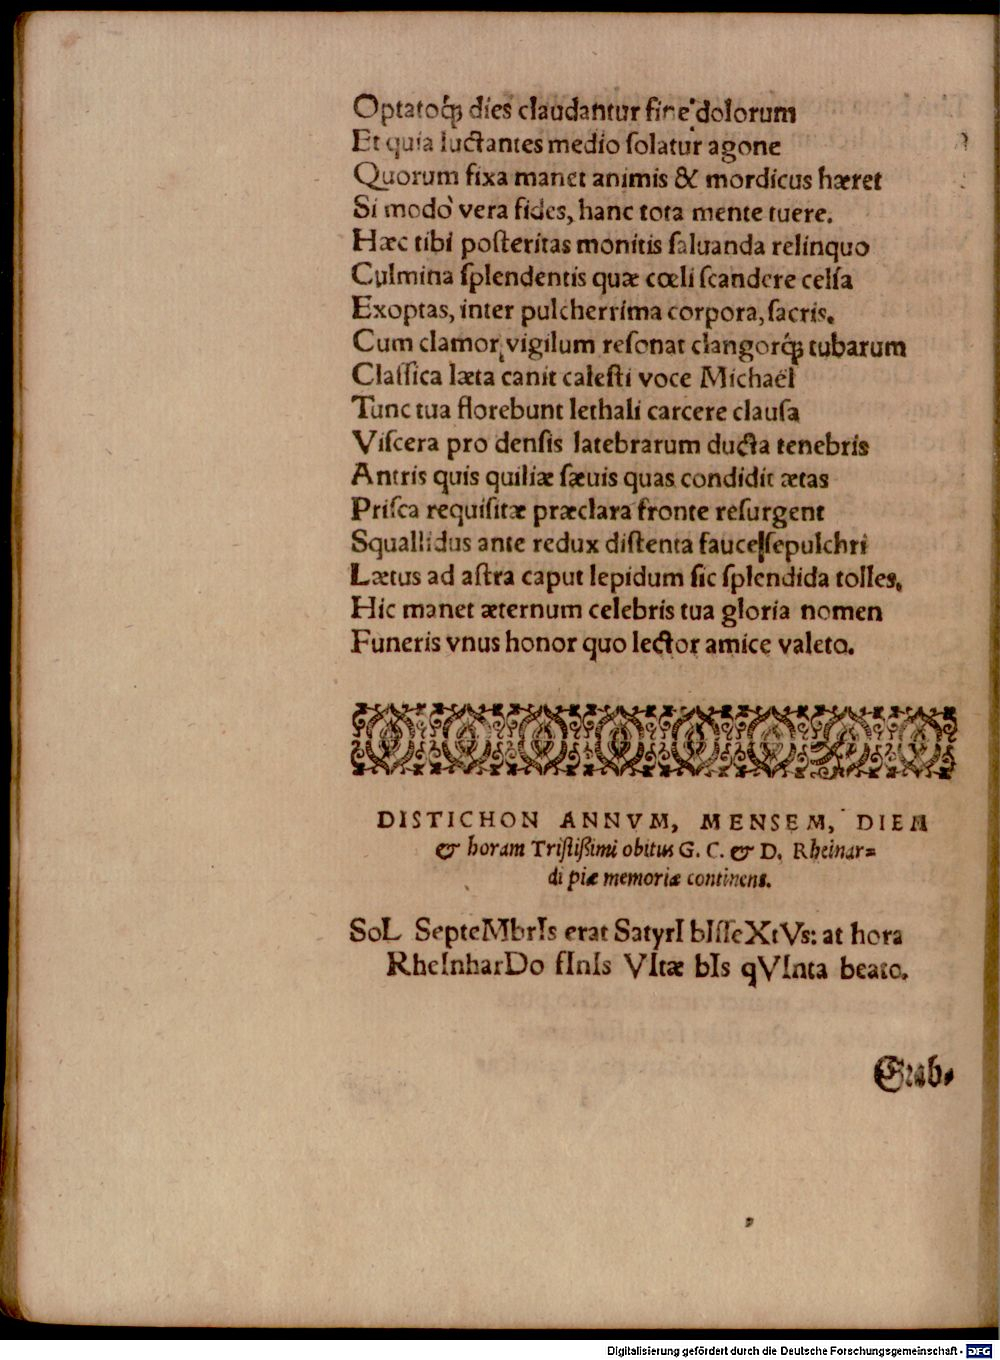 Optatoq́; dies claudantur fine dolorum
Et quia luctantes medio ſolatur agone
Quorum fixa manet animis & mordicus hæret
Si modò vera fides, hanc tota mente tuere.
Hæc tibi poſteritas monitis ſaluanda relinquo
Culmina ſplendentis quæ cœli ſcandere celſa
Exoptas, inter pulcherrima corpora, ſacris.
Cum clamor vigilum reſonat clangorq́; tubarum
Claſſica læta canit calesti voce Michaël
Tunc tua florebunt lethali carcere clauſa
Viſcera pro denſis latebrarum ducta tenebris
Antris quis quiliæ ſæuis quas condidit ætas
Priſca requiſitæ præclara fronte reſurgent
Squallidus ante redux diſtenta fauce ſepulchri
Lætus ad aſtra caput lepidum ſic ſplendida tolles,
Hic manet æternum celebris tua gloria nomen
Funeris vnus honor quo lector amice valeto.
DISTICHON ANNVM, MENSEM, DIEM
& horam Triſtißimi obitus G. C. & D. Rheinar=
di piæ memoriæ continens.
SoL SepteMbrIs erat SatyrI bIſſeXtVs: at hora
RheInharDo fInIs VItæ bIs qVInta beato.
Grab-
Digitalisierung gefördert durch die Deutsche Forschungsgemeinschaft - DFG